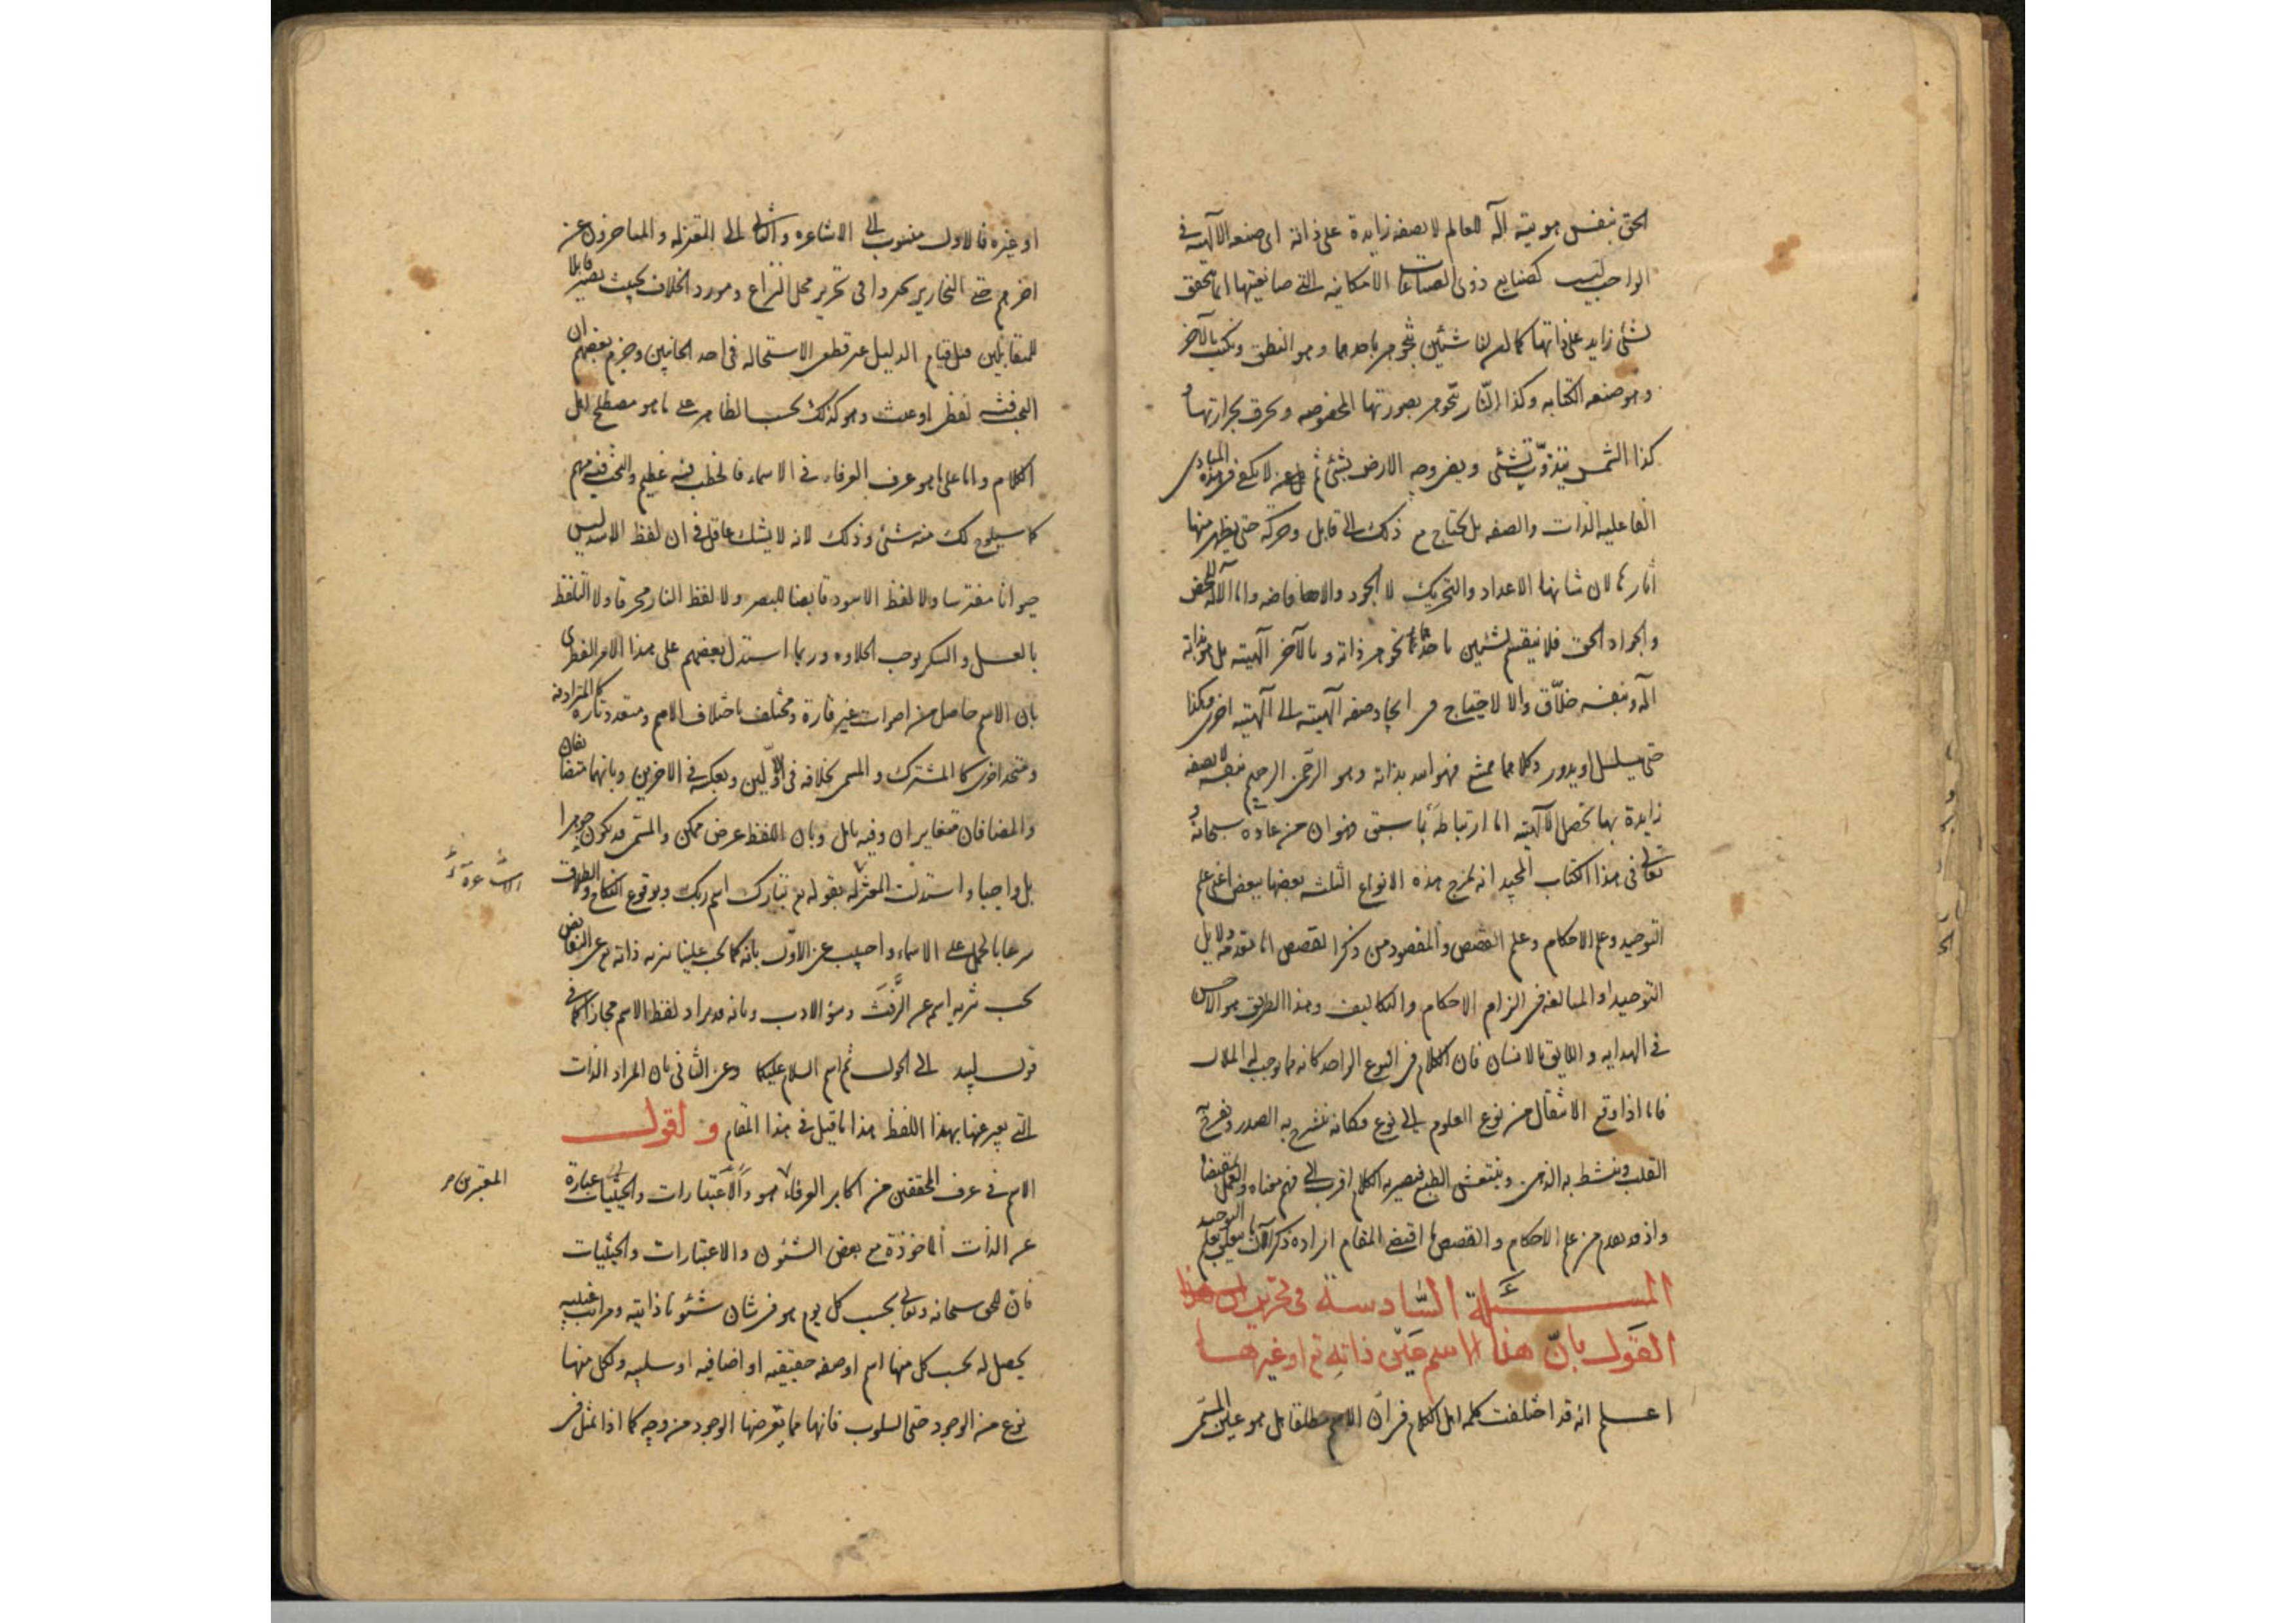 الحق بنفس هويته آله للعالم لا بصفه زايدة على ذاته اى صنعه الآلهيه فى
الواجب ليست كصنايع ذوى الصناعات الامكانيه التى صانعيتها انما تحقق
لشئ زايد على ذاتها كما ان لنا شيئين نتجوهر باحدهما وهو النطق ونكتب بالآخر
وهو صنعه الكتابه وكذا النّار تتجوهر بصورتها المخصوصه وتحرق بحرارتها و
كذا الشمس تتذوّت بشئ ويضئ وجه الارض بشئ ثم لا يكفى فى هذه المبادى
الفاعليه الذات والصفه بل تحتاج مع ذلك الى قابل وحركه حتى يظهر منها
آثارها لان شانها الاعداد والتحريك لا الجود والافاضه واما الآله المحض
والجواد الحق فلا ينقسم لشيئين باحدهما تجوهر ذاته وبالآخر آلهيته بل هو بذاته
آله وبنفسه خلّاق والا لاحتياج فى ايجاد صفه آلهيته الى آلهيته اخرى وهكذا
حتى يتسلسل او يدور وكلاهما ممتنع فهو الله بذاته وهو الرحمن الرحيم بنفسه لا بصفه
زايدة بها تحصل الآلهيته اما ارتباطه بما سبق فهو ان من عاده سبحانه و
تعالى فى هذا الكتاب المجيد انه يمزج هذه الانواع الثلثه بعضها ببعض اعنى علم
التوحيد وعلم الاحكام وعلم القصص والمقصود من ذكر القصص اما تقدمه دلايل
التوحيد او المبالغه فى الزام الاحكام والتكاليف وهذا الطريق هو الاحسن
فى الهدايه و اللايق بالانسان فان الكلام فى النوع الواحد كانه مما يوجب له الملال
فاما اذا وقع الانتقال من نوع العلوم الى نوع فكانه ينشرح به الصدر ويفرح به
القلب وينشط به الذهن وينتعش الطبع فيصير به الكلام اقرب الى فهم معناه والعمل بمقتضاه
واذ قد تقدم من علم الاحكام والقصص ما اقتضى المقام ايراده ذكر الآن ما يتعلق بعلم التوحيد
المسئلة السّادسة فى تحرير ان هذا
القول بانّ هذا الاسم عين ذاته تع او غيرها
اعلم انه قد اختلفت كلمه اهل الكلام فى ان الاسم مطلقا هل هو عين المسمى
او غيره فالاول منسوب الى الاشاعره والثانى الى المعتزله والمتاخرون عن
اخرهم حتى النحارير تحيروا فى تحرير محل النزاع ومورد الخلاف بحيث يصير قابلا
للمتقابلين قبل قيام الدليل عن قطع الاستحاله فى احد الجانبين وجزم بعضهم ان
البحث فيه لفظى او عبث وهو كذلك بحسب الظاهر على ما هو مصطلح اهل
الكلام واما على ما هو عرف العرفاء فى الاسماء فالخطب فيه عظيم والبحث فيه مهم
كما سيلوح لك منه شئ وذلك لانه لا يشك عاقل فى ان لفظ الاسد ليس
حيوانا مفترسا ولا لفظ الاسود قابضا للبصر ولا لفظ النار محرقا ولا التلفظ
بالعسل والسكر يوجب الحلاوه وربما استدل بعضهم على هذا الامر الفطرى
بان الاسم حاصل من اصوات غير قارة ومختلف باختلاف الامم ومتعدد تارة كالمترادفه
ومتحد اخرى كالمشترك والمسمى بخلافه فى الاوّلين وبعكسه فى الاخرين وبانهما متضايفان
والمضافان متغايران وفيه تامل وبان اللفظ عرض ممكن والمسمّى قد يكون جوهرا
بل واجبا واستدلت المعتزله بقوله تع تبارك اسم ربك وبوقوع النكاح والطلاق
الاشاعرة
شرعا بالحمل على الاسماء واجيب عن الاوّل بانه كما يجب علينا تنزيه ذاته تع عن النقايص
يجب تنزيه اسمه عن الرَّفَث وسؤ الادب وبانه قد يراد لفظ الاسم مجازا كما فى
قول لبيد الى الحول ثم اسم السلام عليكما وعن الثانى بان المراد الذات
التى يعبر عنها بهذا اللفظ هذا ما قيل فى هذا المقام و نقول
الاسم فى عرف المحققين من اكابر العرفاء هو والاعتبارات والحيثيات عبارة
المعتبرين
عن الذات الماخوذة مع بعض الشئون والاعتبارات والحيثيات
فان للحق سبحانه وتعالى بحسب كل يوم هو فى شان شئونا ذاتيه ومراتب غيبيه
يحصل له بحسب كل منها اسم او صفه حقيقيه او اضافيه او سلبيه ولكل منها
نوع من الوجود حتى السلوب فانها مما يعرضها الوجود من وجه كما اذا تمثل فى